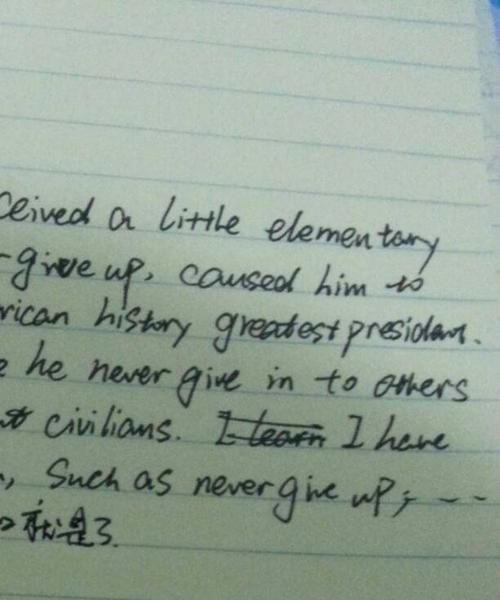 ceived a little elementary
-give up, caused him to
rican history greatest president.
he never give in to others
civilians. I learn I have
, Such as never give up; --
就是了.